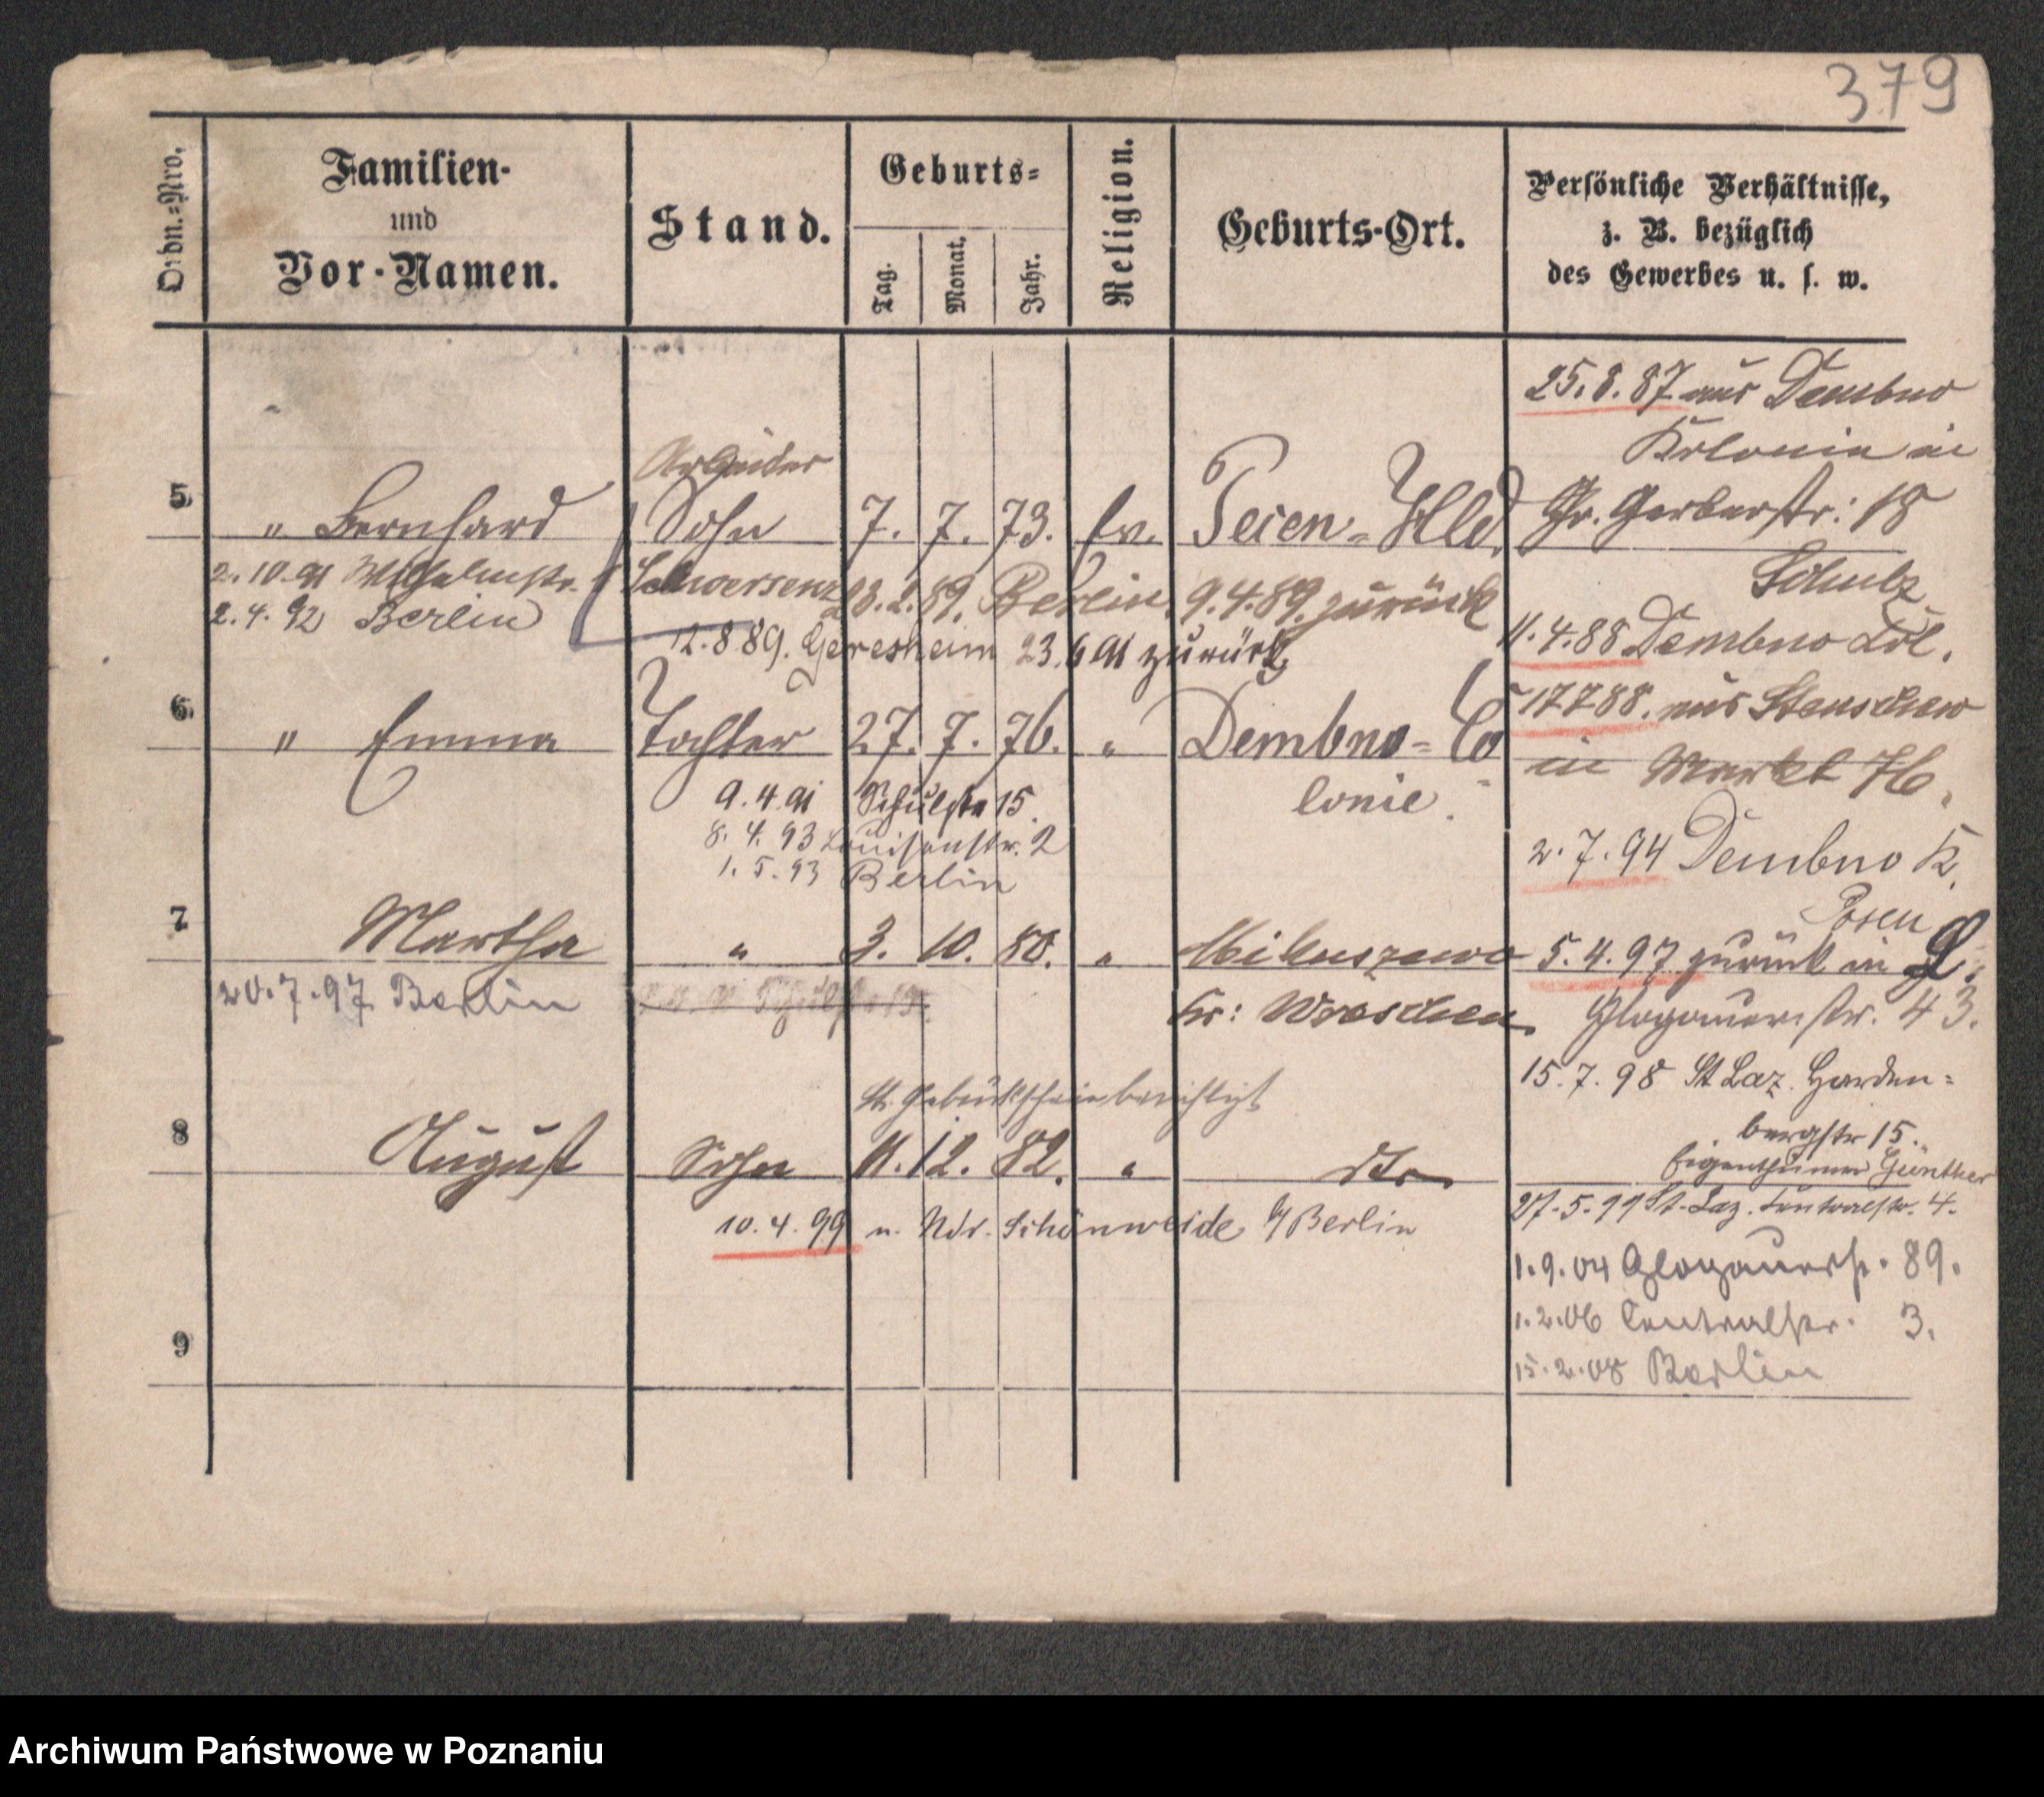 379
Ordn.-Nro.
Familien-
und
Vor-Namen.
Stand.
Geburts-
Tag.
Monat.
Jahr.
Religion.
Geburts-Ort.
Persönliche Verhältnisse,
z. B. bezüglich
des Gewerbes u. s. w.
25.8.87 aus Dembno
Kolonie in
Gr. Gerberstr: 18
Schulz
11.4.88 Dembno Kol.
17 7 88. aus Stenschewo
in Markt 76.
2.7.94 Dembno K.
Posen
5.4.97 zurück in L.
Glogauerstr. 43.
15.7.98 St Laz. Harden-
bergstr 15.
Eigenthümer Günther
27.5.99 St. Laz. Centralstr. 4.
1.9.04 Glogauerstr. 89.
1.2.06 Centralstr. 3.
15.2.08 Berlin
Arbeiter
5 " Bernhard Sohn 7. 7. 73. ev. Peien-Hld.
2.10.91 Wilhelmstr. Schwersenz 28.2.89. Berlin. 9.4.89. zurück
2.4.92 Berlin 12.8 89. Gerresheim 23.6 91 zurück
6 " Emma Tochter 27. 7. 76. " Dembno-Co
lonie.
9.4.91 Schulstr 15.
8.4.93 Louisenstr. 2
1.5.93 Berlin
7 Martha " 3. 10. 80. " Mikuszewo
20.7.97 Berlin Schulstr 15. Kr: Wreschen
lt. Geburtsschein berichtigt
8 August Sohn 11. 12. 82. " dto
10.4.99 n. Ndr. Schönweide b/Berlin
9
Archiwum Państwowe w Poznaniu